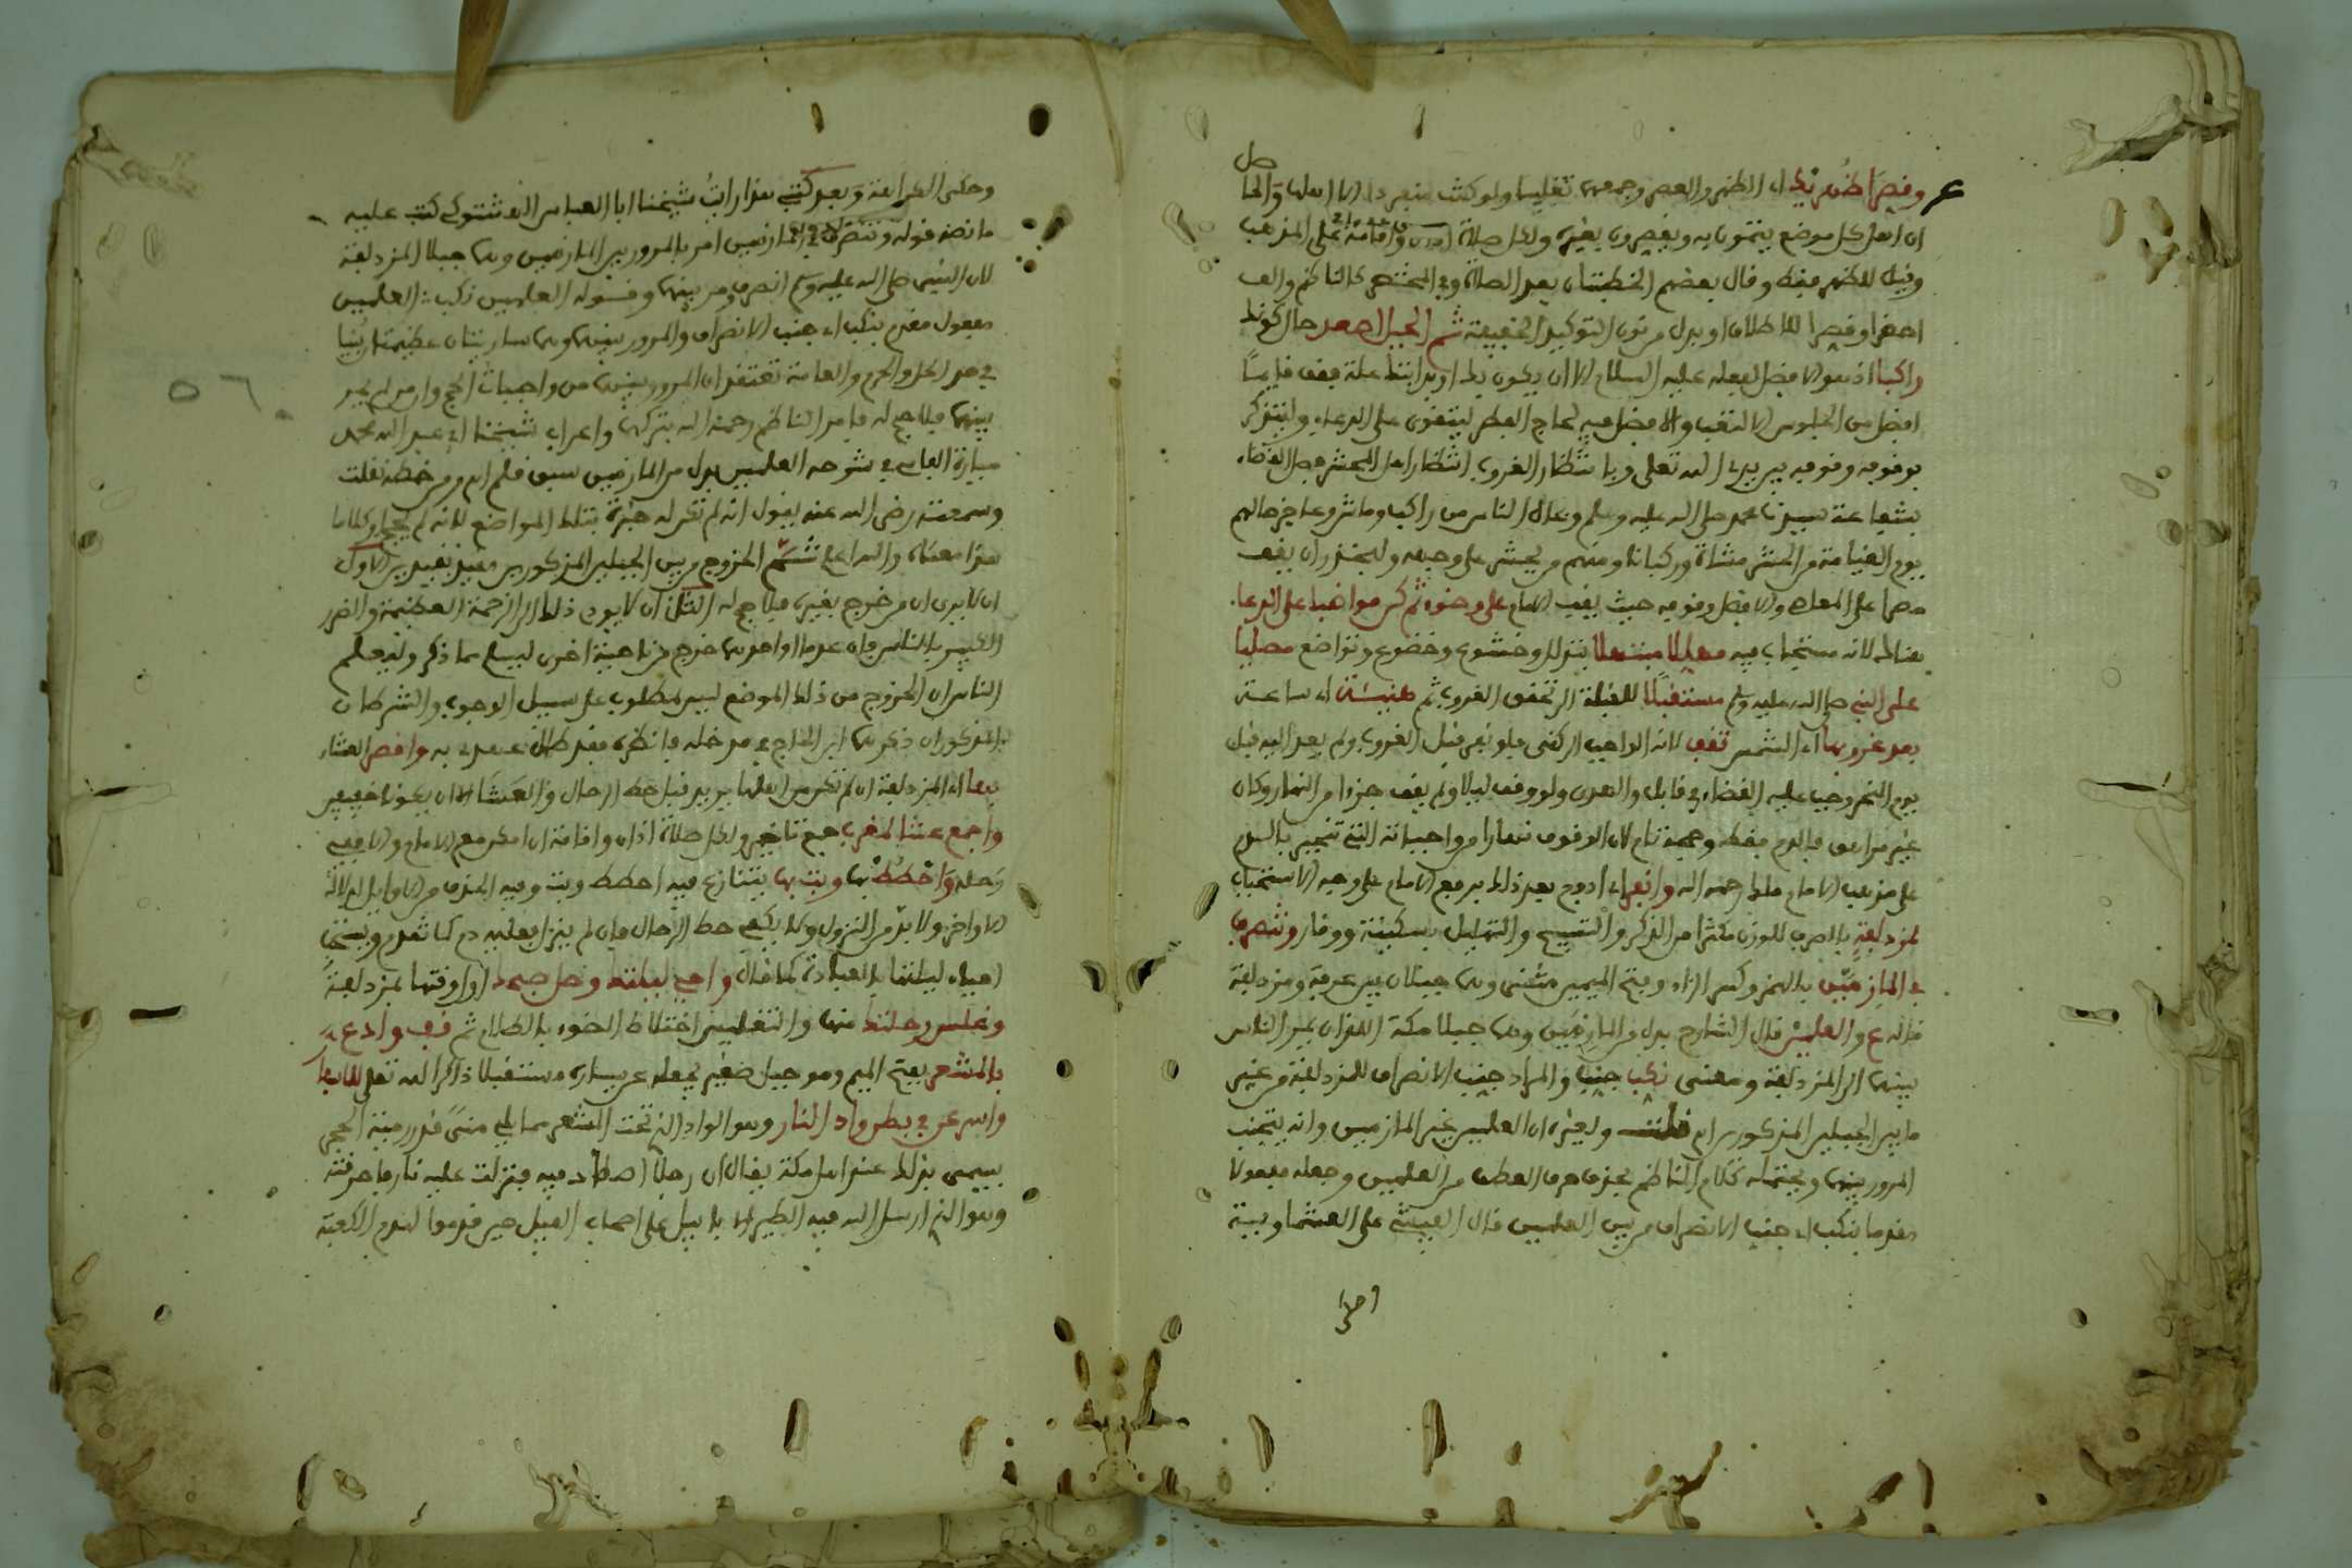 وقصرا ظهريك اي الظهر والعصر وجمعهما تغليبا ولو كنت منفردا الا اهلها والحا
صل
ان اهل كل موضع يتمون به ويقصرون بغيره ولكل صلاة اذان واقامة على المذهب
وقيل للظهر فقط وقال بعضهم الخطبتان بعد الصلاة وفي المختصر كالناظم والف
اجمعا وقصرا للاطلاق او بدل من نون التوكيد الخفيفة ثم الجبل اصعد حال كونك
راكبا اذ هو الافضل لفعله عليه السلام الا ان يكون بك او بدابتك علة فقف قايما
افضل من الجلوس الا لتعب والافضل فيه للحاج الفطر ليتقوى على الدعاء وليتذكر
بوقوفه وقوفه بين يدي الله تعالى وبانتظار الغروب انتظار اهل المحشر فصل القضاء
بشفاعة سيدنا محمد صلى الله عليه وسلم وبحال الناس من راكب وماش وعاجز حالهم
يوم القيامة من الحشر مشاة وركبانا ومنهم من يحشر على وجهه وليحذر ان يقف
على والافضل وقوفه حيث يقف الامام على وضوء ثم كن مواظبا على الدعا
هنالك لانه مستجاب فيه مهللا مبتهلا بتذلل وخشوع وخضوع وتواضع مصليا
على النبي صلى الله عليه وسلم مستقبلا للقبلة الى تحقق الغروب ثم هنيئة اي ساعة
بعد غروبها اي الشمس تقف لانه الواجب الركني فلو نفر قبل الغروب ولم يعد اليه قبل
يوم النحر وجب عليه القضاء في قابل والهدي ولو وقف ليلا ولم يقف جزءا من النهار وكان
غير مراهق فالدم فقط وحجه تام لان الوقوف نهارا من واجباته التي تنجبر بالدم
على مذهب الامام مالك رحمه الله وانفر اي ادفع بعد ذلك بدفع الامام على وجه الاستحباب
لمزدلفة بالصرف للوزن مكثرا من الذكر والتسبيح والتهليل بسكينة ووقار وتنصرف
في المازمين بالهمز وكسر الزاء وفتح الميمين مثنى وهما جبلان بين عرفة ومزدلفة
قاله ع والعلمين قال الشارح بدل من المازمين وهما جبلا مكة اللذان يمر الناس
بينهما الى المزدلفة ومعنى نكب جنب والمراد جنب الانصراف للمزدلفة من غير
ما بين الجبلين المذكورين اه قلت ولغيره ان العلمين غير المازمين وانه يتجنب
المرور بينهما ويحتمله كلام الناظم بحذف حرف العطف من العلمين وجعله مفعولا
مقدما بنكب اي جنب الانصراف من بين العلمين قال الفيشي على العشماوية
وحكى العرافة وبعد كتبي هذا رايت شيخنا ابا العباس الهشتوكي كتب عليه
ما نصه قوله وتنصرف في المازمين امر بالمرور بين المازمين وهما جبلا المزدلفة
لان النبي صلى الله عليه وسلم انصرف ومر بينهما وقوله العلمين نكب العلمين
مفعول مقدم بنكب اي جنب الانصراف والمرور بينهما وهما ساريتان عظيمتان بنيا
في حد الحل والحرم والعامة تعتقد ان المرور بينهما من واجبات الحج وان من لم يمر
بينهما فلا حج له فامر الناظم رحمه الله بتركهما واعراب شيخنا ابي عبد الله محمد
ميارة الفاسي في شرحه العلمين بدل من المازمين سبق قلم اه ومن خطه نقلت
وسمعته رضي الله عنه يقول انه لم تكن له خبرة بتلك المواضع لانه لم يحج او كلاما
هذا معناه والله اعلم ثم الخروج من بين الجبلين المذكورين مقيد بقيدين الاول
ان لا يرى ان من خرج بغيره فلا حج له الثاني ان لا يودي ذلك الى الزحمة العظيمة والضرر
الكثير بالناس فان عدما او احدهما خرج من ناحية اخرى ليسلم مما ذكر وليعلم
الناس ان الخروج من ذلك الموضع ليس بمطلوب على سبيل الوجوب والشرطان
المذكوران ذكرهما ابن الحاج في مدخله فانظره فقد طال عهدي به واقصر العشاء
بها اي المزدلفة ان لم تكن من اهلها يريد قبل حط الرحال والعشاء الا ان يكون خفيفين
واجمع عشا لمغرب جمع تاخير ولكل صلاة اذان واقامة ان امكن مع الامام والا ففي
رحله واحطط بها وبت بها يتنازع فيه احطط وبت وفيه الحذف من الاوايل لدلالة
الاواخر ولا بد من النزول ولا يكفي حط الرحال فان لم ينزل فعليه دم كما تقدم ويستحب
احياء ليلتها بالعبادة كما قال واحي ليلتك وصل صبحك اول وقتها بمزدلفة
وغلس رحلتك منها والتغليس اختلاط الضوء بالظلام ثم قف وادع
بالمشعر بفتح الميم وهو جبل صغير يجعله عن يساره مستقبلا ذاكرا الله تعالى للاسفار
واسرعن في بطن واد النار وهو الوادي الذي تحت المشعر مما يلي منى قدر رمية الحجر
يسمى بذلك عند اهل مكة يقال ان رجلا اصطاد فيه فنزلت عليه نار فاحرقته
وهو الذي ارسل الله فيه الطير الابابيل على اصحاب الفيل حين قدموا لهدم الكعبة